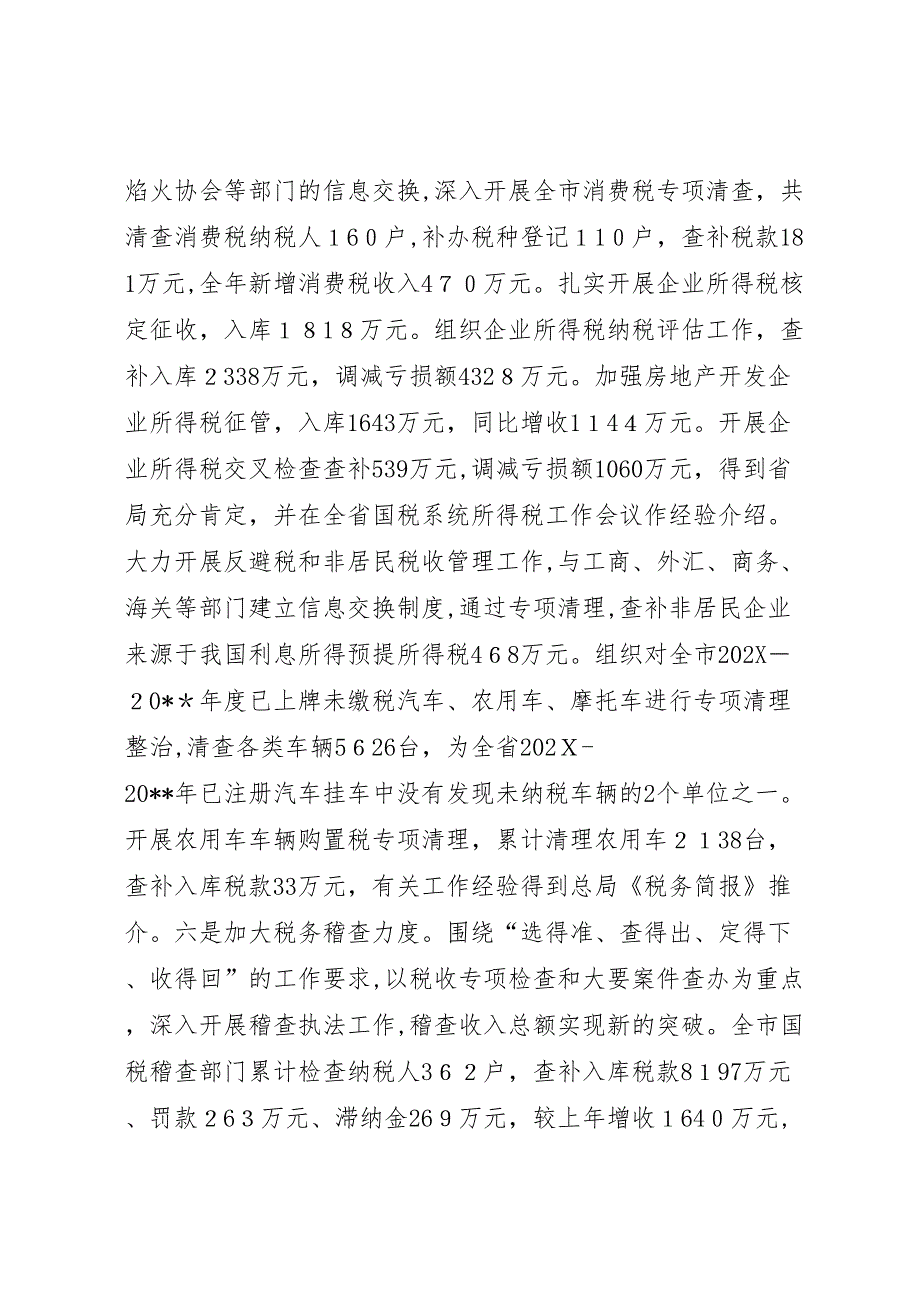 焰火协会等部门的信息交换,深入开展全市消费税专项清查，共
清查消费税纳税人１6０户,补办税种登记１1０户，查补税款18
1万元,全年新增消费税收入4７０万元。扎实开展企业所得税核
定征收，入库１８1８万元。组织企业所得税纳税评估工作，查
补入库２338万元，调减亏损额432８万元。加强房地产开发企
业所得税征管，入库1643万元，同比增收1１4４万元。开展企
业所得税交叉检查查补539万元,调减亏损额1060万元，得到省
局充分肯定，并在全省国税系统所得税工作会议作经验介绍。
大力开展反避税和非居民税收管理工作,与工商、外汇、商务、
海关等部门建立信息交换制度,通过专项清理,查补非居民企业
来源于我国利息所得预提所得税4６8万元。组织对全市202X－
２0*＊年度已上牌未缴税汽车、农用车、摩托车进行专项清理
整治,清查各类车辆5６26台，为全省202Ｘ-
20**年已注册汽车挂车中没有发现未纳税车辆的2个单位之一。
开展农用车车辆购置税专项清理，累计清理农用车２１38台，
查补入库税款33万元，有关工作经验得到总局《税务简报》推
介。六是加大税务稽查力度。围绕“选得准、查得出、定得下
、收得回”的工作要求,以税收专项检查和大要案件查办为重点
，深入开展稽查执法工作,稽查收入总额实现新的突破。全市国
税稽查部门累计检查纳税人3６２户，查补入库税款8１97万元
、罚款２６３万元、滞纳金26９万元，较上年增收１6４0万元,